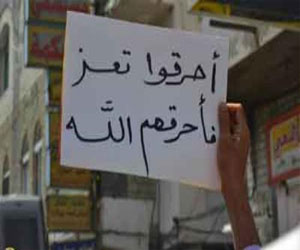 أحرقوا تعز
فأحرقهم اللّٰه